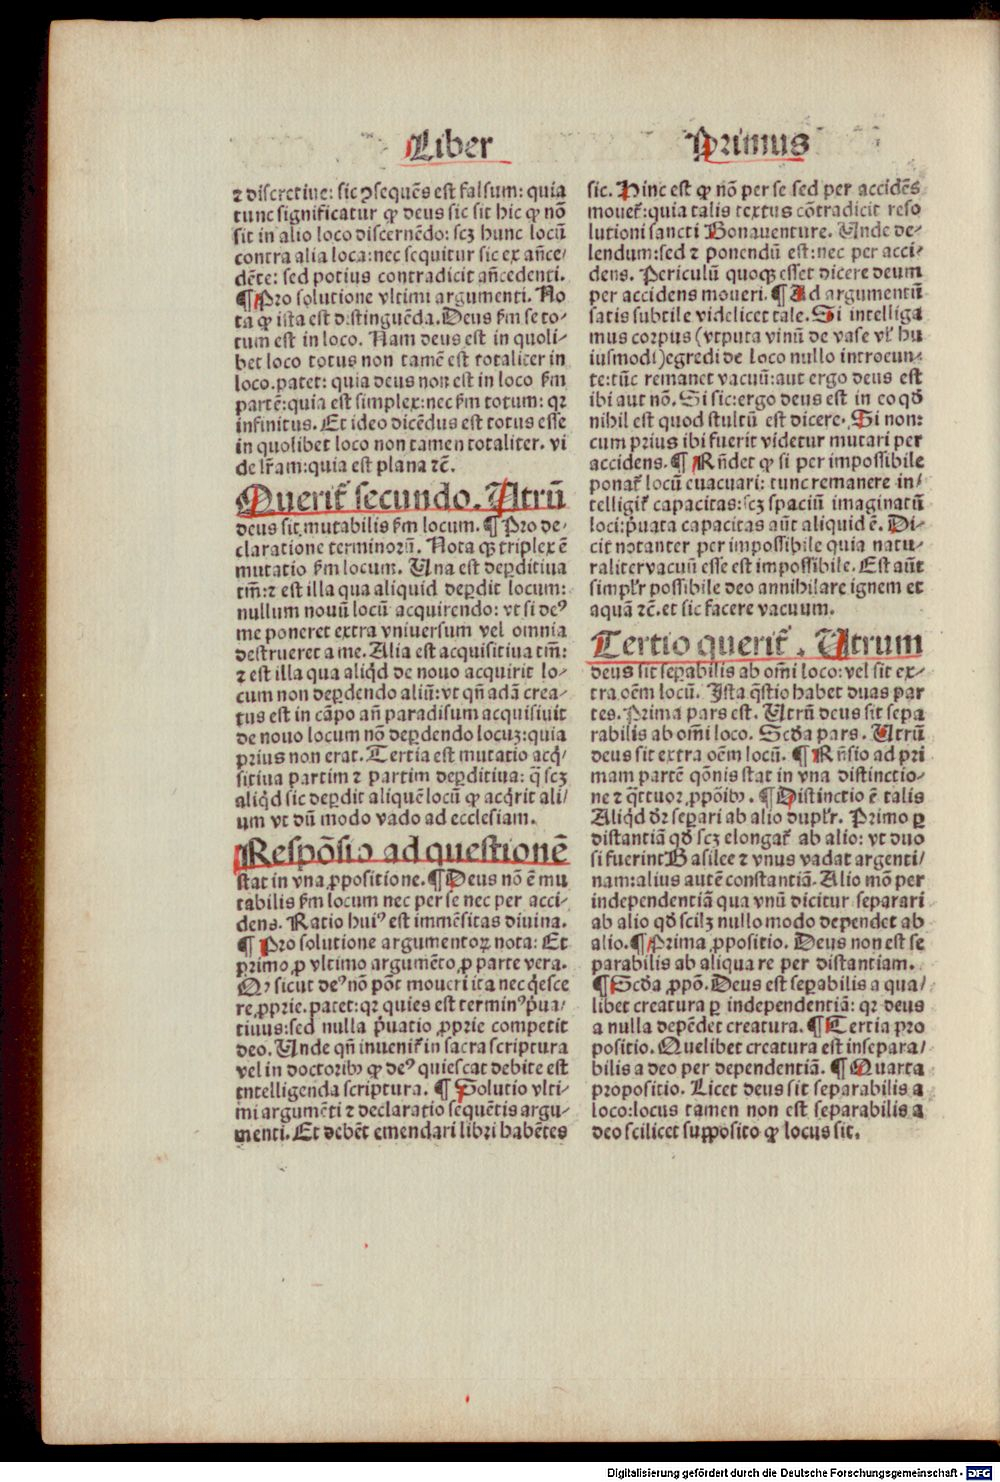 Liber
Primus
⁊ discretiue: sic ꝯsequēs est falsum: quia
tunc significatur ꝙ deus sic sit hic ꝙ nō
sit in alio loco discernēdo: scꝫ hunc locū
contra alia loca: nec sequitur sic ex añce⸗
dēte: sed potius contradicit añcedenti.
¶ Pro solutione vltimi argumenti. No
ta ꝙ ista est distinguēda. Deus ẜm se to⸗
tum est in loco. Nam deus est in quoli⸗
bet loco totus non tamē est totaliter in
loco. patet: quia deus non est in loco ẜm
partē: quia est simplex: nec ẜm totum: qꝛ
infinitus. Et ideo dicēdus est totus esse
in quolibet loco non tamen totaliter. vi
de lr̃am: quia est plana ⁊c̃.
Querit̃ secundo. Utrū
deus sit mutabilis ẜm locum. ¶ Pro de⸗
claratione terminorū. Nota qꝫ triplex ē
mutatio ẜm locum. Una est deꝑditiua
tm̄: ⁊ est illa qua aliquid deꝑdit locum:
nullum nouū locū acquirendo: vt si deꝰ
me poneret extra vniuersum vel omnia
destrueret a me. Alia est acquisitiua tm̄:
⁊ est illa qua aliq̇d de nouo acquirit lo⸗
cum non deꝑdendo aliū: vt qñ adā crea⸗
tus est in cāpo añ paradisum acquisiuit
de nouo locum nō deꝑdendo locuꝫ: quia
prius non erat. Tertia est mutatio acq̇⸗
sitiua partim ⁊ partim deꝑditiua: q̄ scꝫ
aliq̇d sic deꝑdit aliquē locū ꝙ acq̇rit ali⸗
um vt dū modo vado ad ecclesiam.
Respōsio ad questionē
stat in vna ꝓpositione. ¶ Deus nō ē mu
tabilis ẜm locum nec per se nec per acci⸗
dens. Ratio huiꝰ est immēsitas diuina.
¶ Pro solutione argumentoꝝ nota: Et
primo ꝓ vltimo argumēto ꝓ parte vera.
Qꝫ sicut deꝰ nō pōt moueri ita nec q̇esce
re ꝓprie. patet: qꝛ quies est terminꝰ p̄ua⸗
tiuus: sed nulla p̄uatio ꝓprie competit
deo. Unde qñ inuenit̃ in sacra scriptura
vel in doctoribꝰ ꝙ deꝰ quiescat debite est
intelligenda scriptura. ¶ Solutio vlti⸗
mi argumēti ⁊ declaratio sequētis argu⸗
menti. Et debēt emendari libri habētes
sic. Hinc est ꝙ nō per se sed per accidēs
mouet̃: quia talis textus cōtradicit reso
lutioni sancti Bonauenture. Unde de⸗
lendum: sed ⁊ ponendū est: nec per acci⸗
dens. Periculū quoqꝫ esset dicere deum
per accidens moueri. ¶ Ad argumentū
satis subtile videlicet tale. Si intelliga
mus corpus (vtputa vinū de vase vl̓ hu
iusmodi) egredi de loco nullo introeun⸗
te: tūc remanet vacuū: aut ergo deus est
ibi aut nō. Si sic: ergo deus est in eo qđ
nihil est quod stultū est dicere. Si non:
cum prius ibi fuerit videtur mutari per
accidens. ¶ Rñdet ꝙ si per impossibile
ponat̃ locū euacuari: tunc remanere in⸗
telligit̃ capacitas: scꝫ spaciū imaginatū
loci: p̄uata capacitas aūt aliquid ē. Di⸗
cit notanter per impossibile quia natu⸗
raliter vacuū esse est impossibile. Est aūt
simpl̓r possibile deo annihilare ignem et
aquā ⁊c̃. et sic facere vacuum.
Tertio querit̃. Utrum
deus sit seꝑabilis ab om̄i loco: vel sit ex⸗
tra oēm locū. Ista q̄stio habet duas par
tes. Prima pars est. Utrū deus sit sepa
rabilis ab om̄i loco. Scđa pars. Utrū
deus sit extra oēm locū. ¶ Rñsio ad pri
mam partē q̄ōnis stat in vna distinctio⸗
ne ⁊ q̄ttuor ꝓpōibꝰ. ¶ Distinctio ē talis
Aliq̇d dr̄ seꝑari ab alio dupl̓r. Primo ꝑ
distantiā qđ scꝫ elongat̃ ab alio: vt duo
si fuerint Basilee ⁊ vnus vadat argenti⸗
nam: alius autē constantiā. Alio mō per
independentiā qua vnū dicitur separari
ab alio qđ scilꝫ nullo modo dependet ab
alio. ¶ Prima ꝓpositio. Deus non est se
parabilis ab aliqua re per distantiam.
¶ Scđa ꝓpō. Deus est seꝑabilis a qua⸗
libet creatura ꝑ independentiā: qꝛ deus
a nulla depēdet creatura. ¶ Tertia pro
positio. Quelibet creatura est insepara⸗
bilis a deo per dependentiā. ¶ Quarta
propositio. Licet deus sit separabilis a
loco: locus tamen non est separabilis a
deo scilicet supposito ꝙ locus sit.
Digitalisierung gefördert durch die Deutsche Forschungsgemeinschaft - DFG